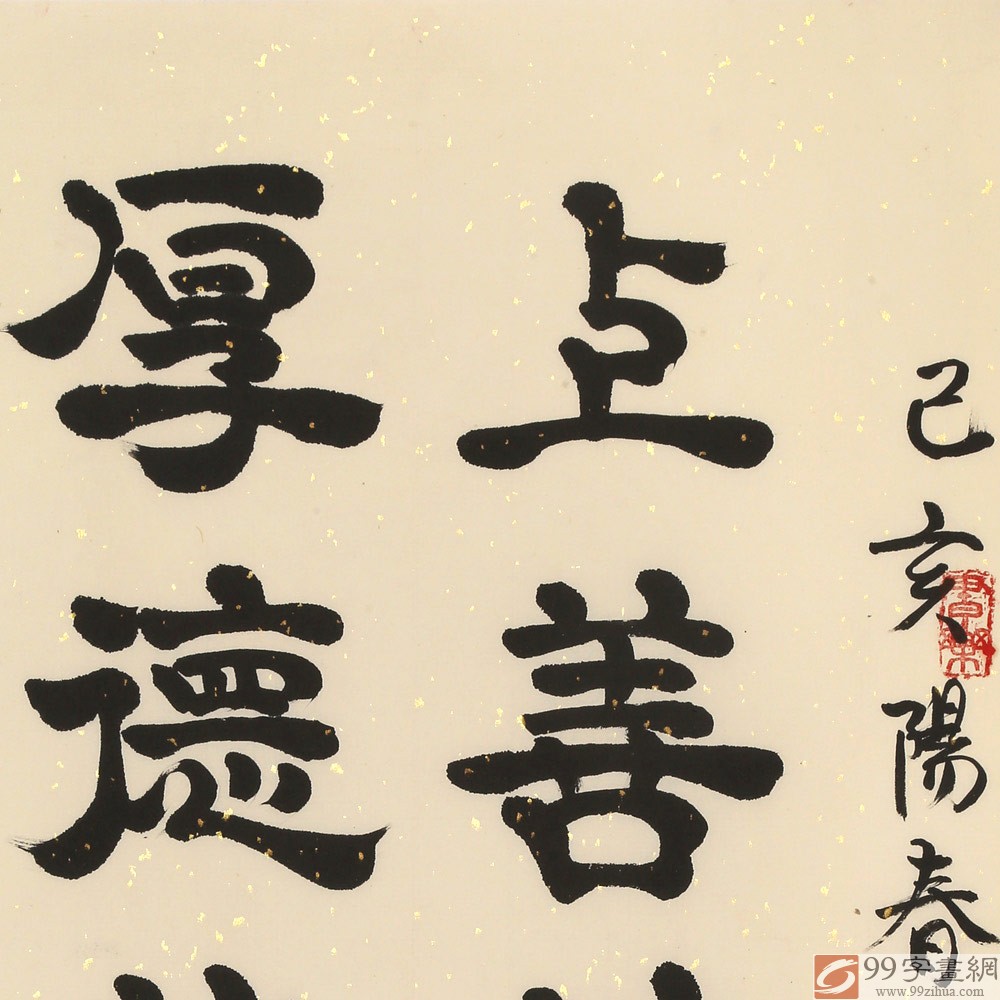 己亥陽春
上善
厚德
99字畫網
www.99zihua.com